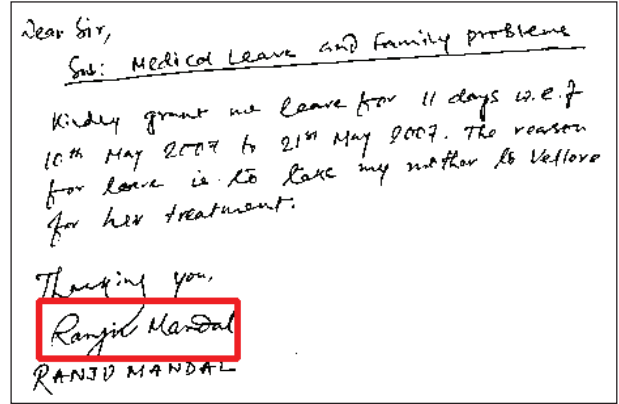 Dear Sir,
Sub: Medical Leave and Family problems
Kindly grant me leave for 11 days w.e.f
10th May 2007 to 21st May 2007. The reason
for leave is to take my mother to Vellore
for her treatment.
Thanking you,
Ranjit Mandal
RANJU MANDAL